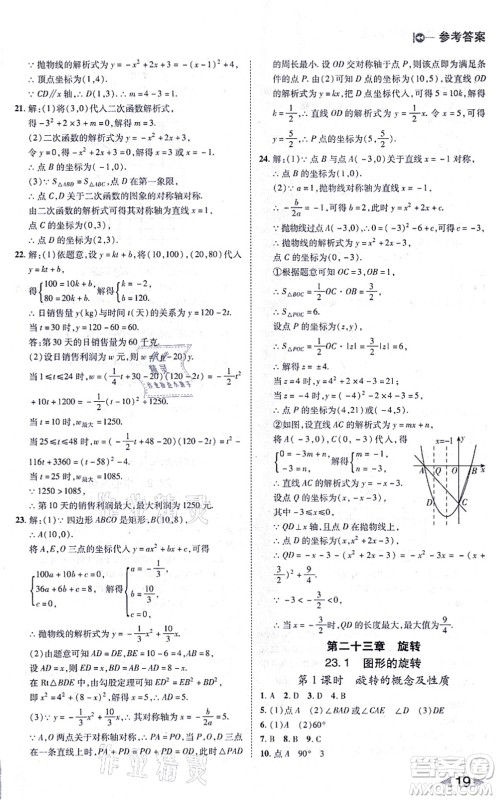 参考答案
∴抛物线的解析式为 y=-x²+2x+3.
∴顶点坐标为(1,4).
∵CD∥x轴, ∴D(1,3). ∴m=4-3=1.
21. 解:(1)将(3,0)代入二次函数解析式,
得-3²+2×3+m=0. 解得 m=3.
(2)二次函数的解析式为 y=-x²+2x+3,
令 y=0,得-x²+2x+3=0. 解得 x=3 或 x=-1.
∴点 B 的坐标为(-1,0).
(3)∵S△ABD=S△ABC,点 D 在第一象限,
∴点 C,D 关于二次函数的图象的对称轴对称.
由二次函数的解析式可得其对称轴为直线 x=1,
点 C 的坐标为(0,3),
∴点 D 的坐标为(2,3).
22. 解:(1)依题意,设 y=kt+b,将(10,100),(20,80)代入
y=kt+b,得
{100=10k+b, 80=20k+b. 解得 {k=-2, b=120.
∴日销售量 y(kg)与时间 t(天)的关系为 y=120-2t.
当 t=30 时,y=120-60=60.
答:第30天的日销售量为60千克.
(2)设日销售利润为 w 元,则 w=(p-20)y.
当 1≤t≤24 时,w=(1/4 t+30-20)(120-2t)=-1/2 t²
+10t+1200=-1/2(t-10)²+1250.
当 t=10 时,w最大=1250.
当 25≤t≤48 时,w=(-1/2 t+48-20)(120-2t)=t²-
116t+3360=(t-58)²-4.
由二次函数的图象及性质知:
当 t=25 时,w最大=1085.
∵1250>1085,
∴第10天的销售利润最大,最大利润为1250元.
23. 解:(1)∵四边形 ABCD 是矩形,B(10,8),
∴A(10,0).
将 A,E,O 三点的坐标代入 y=ax²+bx+c,得
{100a+10b+c=0, 36a+6b+c=8, c=0. 解得 {a=-1/3, b=10/3, c=0.
∴抛物线的解析式为 y=-1/3x²+10/3x.
(2)由题意可知 AD=DE,BE=10-6=4,AB=8.
设 AD=x,则 ED=x,BD=AB-AD=8-x.
在 Rt△BDE 中,由勾股定理,得 ED²=EB²+BD²,
即 x²=4²+(8-x)². 解得 x=5. ∴AD=5.
(3)∵y=-1/3x²+10/3x,∴其对称轴为直线 x=5.
∵A,O 两点关于对称轴对称,∴PA=PO. 当 P,O,D 三点
在一条直线上时,PA+PD=PO+PD=OD,此时△PAD
的周长最小. 设 OD 交对称轴于点 P,则该点即为满足条
件的点. 由(2)可知点 D 的坐标为(10,5). 设直线 OD 的
解析式为 y=kx,把点 D 代入,可得 5=10k,解得
k=1/2,∴直线 OD 的解析式为 y=1/2x. 令 x=5,可得
y=5/2,∴点 P 的坐标为(5,5/2).
24. 解:(1)∵点 A(-3,0)与点 B 关于直线 x=-1 对称,
∴点 B 的坐标为(1,0).
(2)∵a=1,∴y=x²+bx+c.
∵抛物线过点 A(-3,0),且对称轴为直线 x=-1,
∴{9-3b+c=0, -b/2a=-1. 解得 {b=2, c=-3.
∴y=x²+2x-3,且点 C 的坐标为(0,-3).
①根据题意可知 OC=3,OB=1.
∴S△BOC=3/2,S△POC=1/2OC·|z|=3/2|z|.
∵S△POC=4S△BOC,
∴3/2|z|=6. 解得 z=±4.
当 z=4 时,z²+2z-3=21;
当 z=-4 时,z²+2z-3=5.
∴点 P 的坐标为(4,21)或(-4,5).
②如图,设直线 AC 的解析式为 y=mx+n,
将 A(-3,0),C(0,-3)代入,得
{0=-3m+n, -3=n. 解得 {m=-1, n=-3.
x=-1
∴y=-x-3.
∵QD⊥x轴,
∴QD=-x-3-(x²+2x-3)=-x²
-3x=-(x+3/2)²+9/4.
∵-3<-3/2<0,
∴当 x=-3/2 时,QD 的长度最大,最大值为 9/4.
第二十三章 旋转
23.1 图形的旋转
第1课时 旋转的概念及性质
1. A 2. D 3. D 4. B
5. (1)点 A (2)∠BAD ∠CAE
6. (1)A (2)60°
10. 点 A 90° 3
19